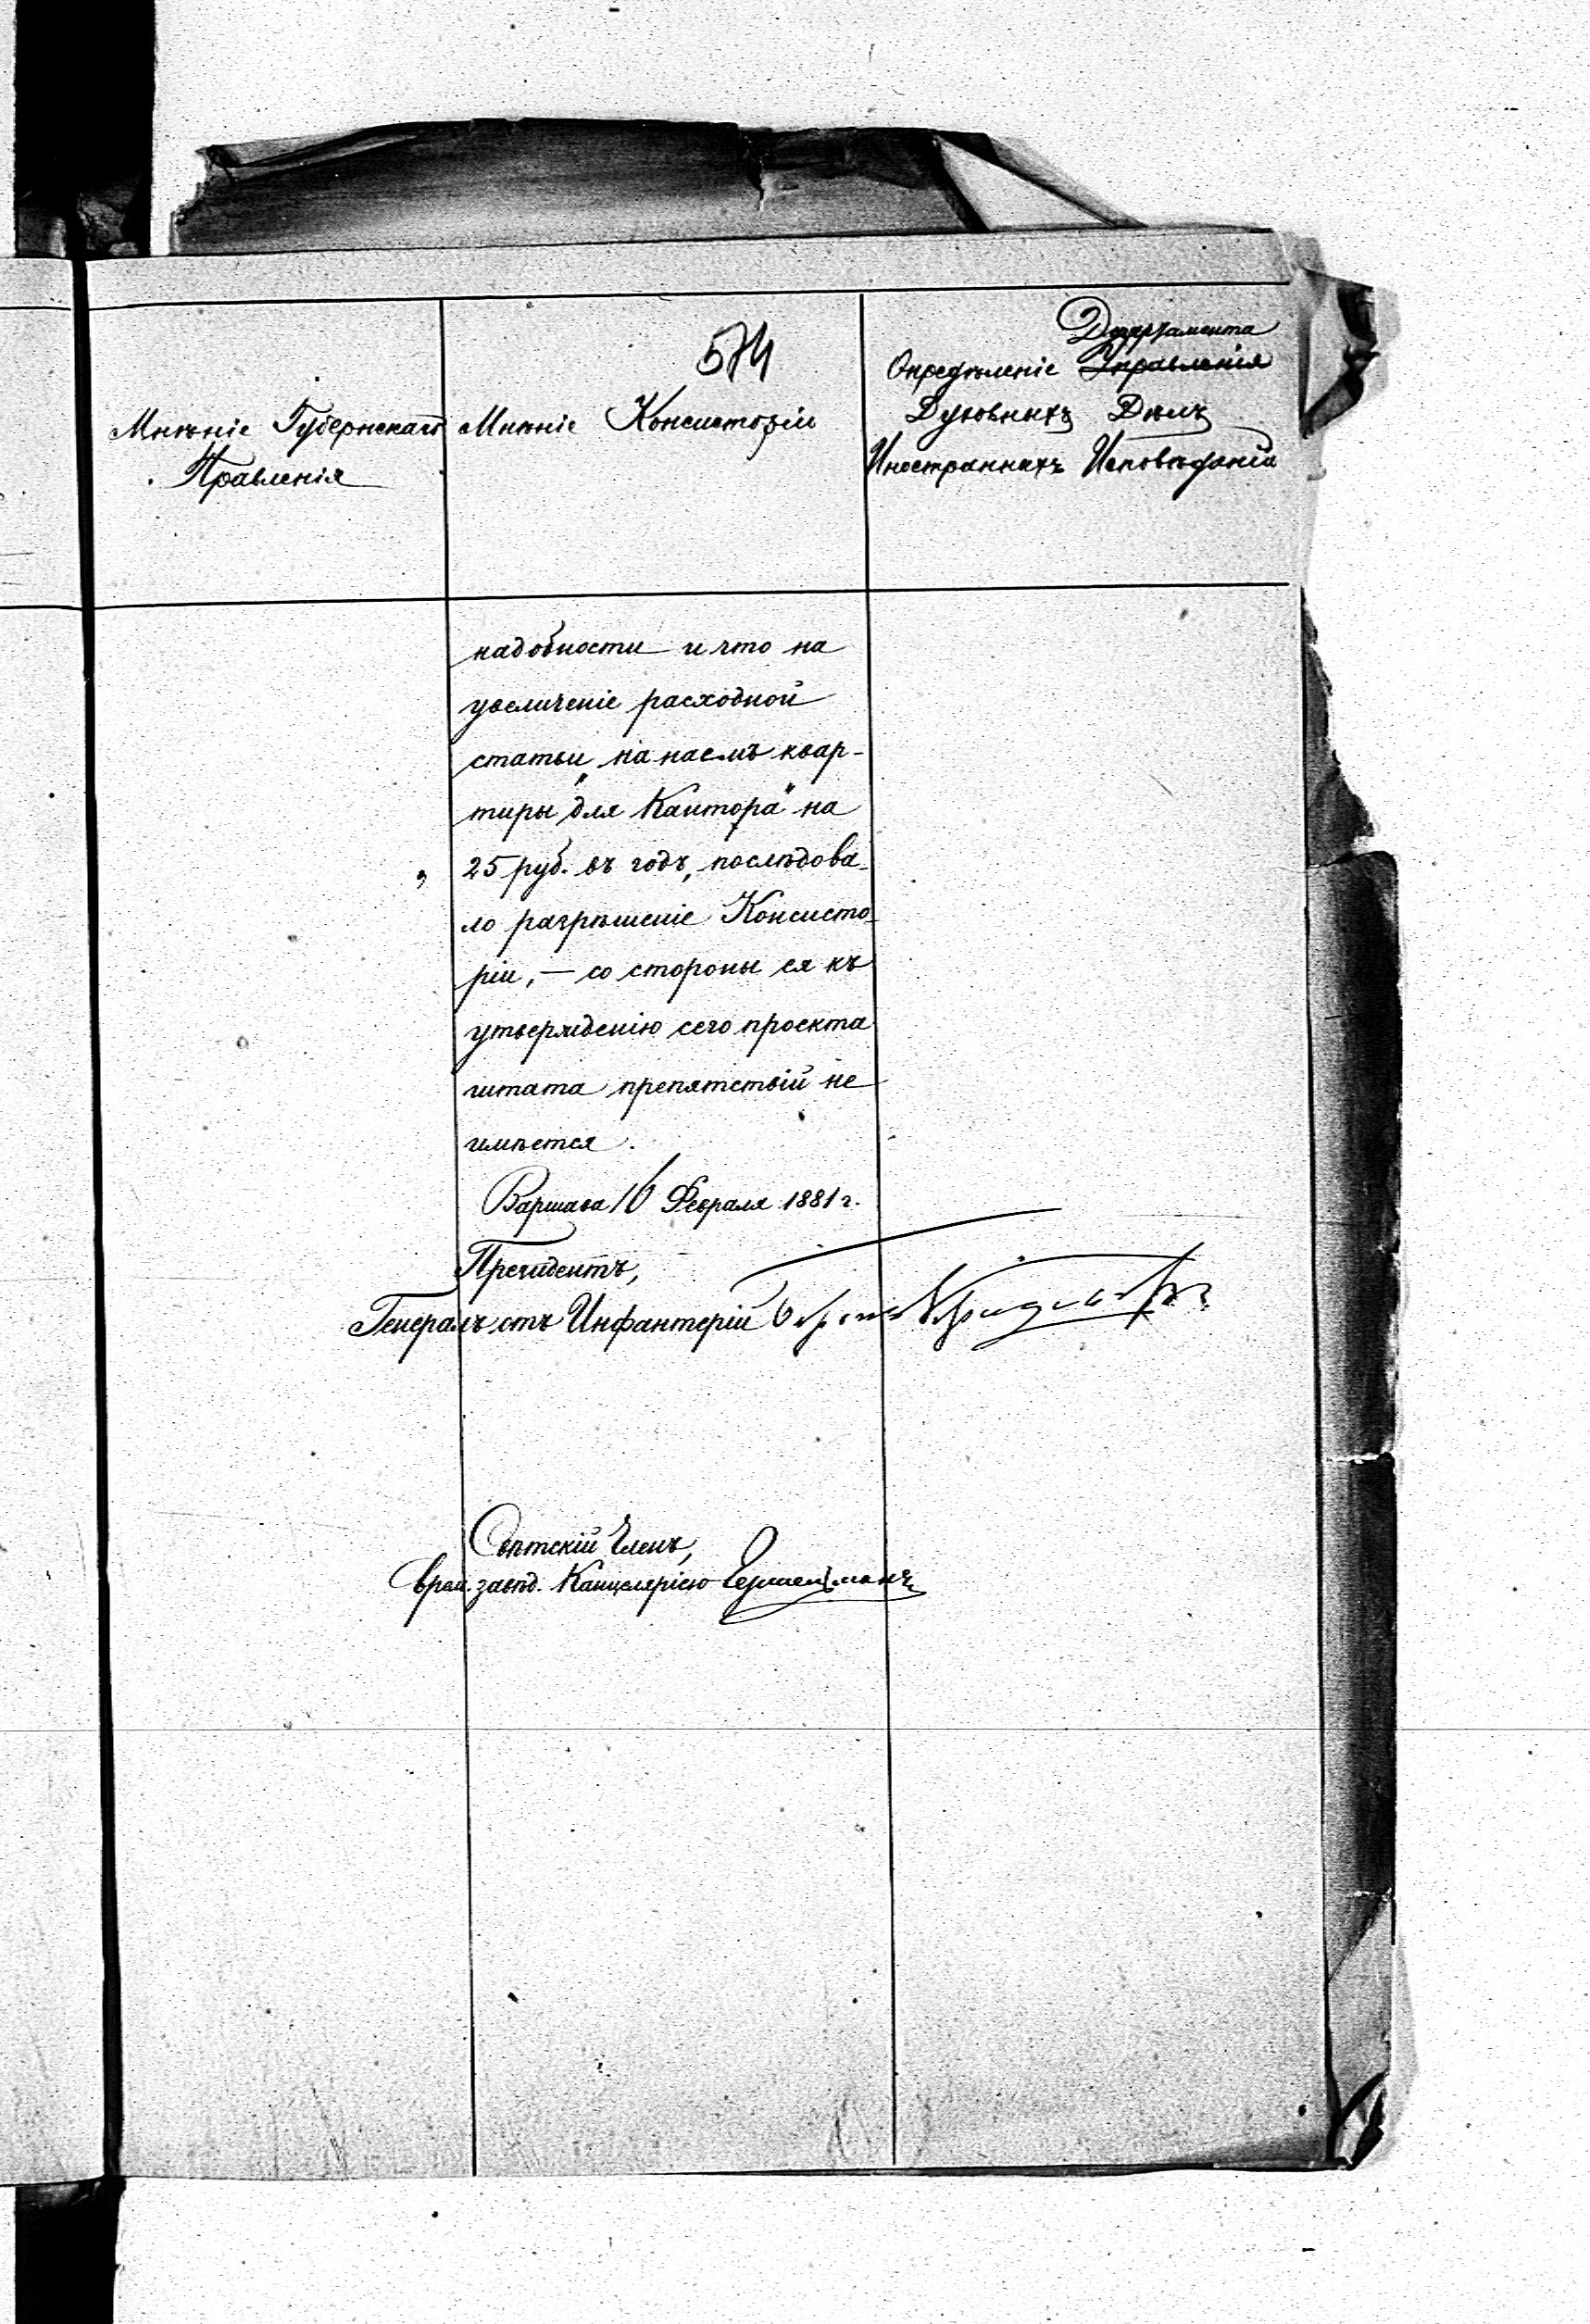 574
Мнѣніе Губернскаго
Правленія
Мнѣніе Консисторіи
Департамента
Опредѣленіе Управленія
Духовныхъ Дѣлъ
Иностранныхъ Исповѣданій
надобности и что на
увеличеніе расходной
статьи „на наемъ квар-
тиры для Кантора" на
25 руб. въ годъ, послѣдова-
ло разрѣшеніе Консисто-
ріи, — со стороны ея къ
утвержденію сего проекта
штата препятствій не
имѣется.
Варшава 16 Февраля 1881 г.
Президентъ,
Генералъ отъ Инфантеріи
Свѣтскій Членъ,
врем. завѣд. Канцеляріею